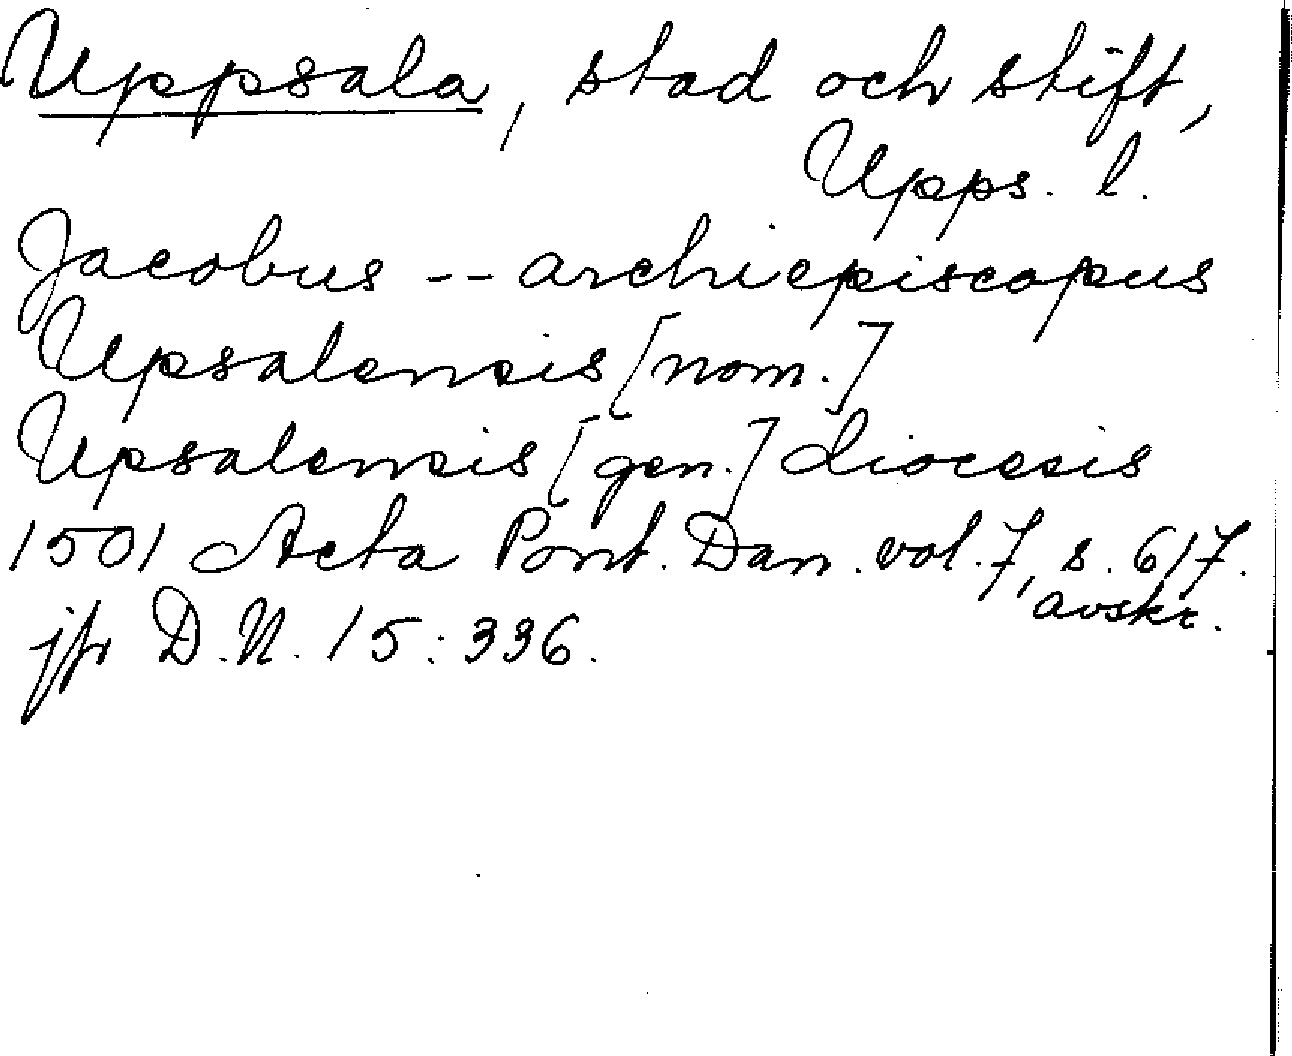 Uppsala, stad och stift,
Upps. l.
Jacobus -- archiepiscopus
Upsalensis [nom.]
Upsalensis [gen.] diocesis
1501 Acta Pont. Dan. vol. 7, s. 617.
avskr.
jfr D.N. 15:336.